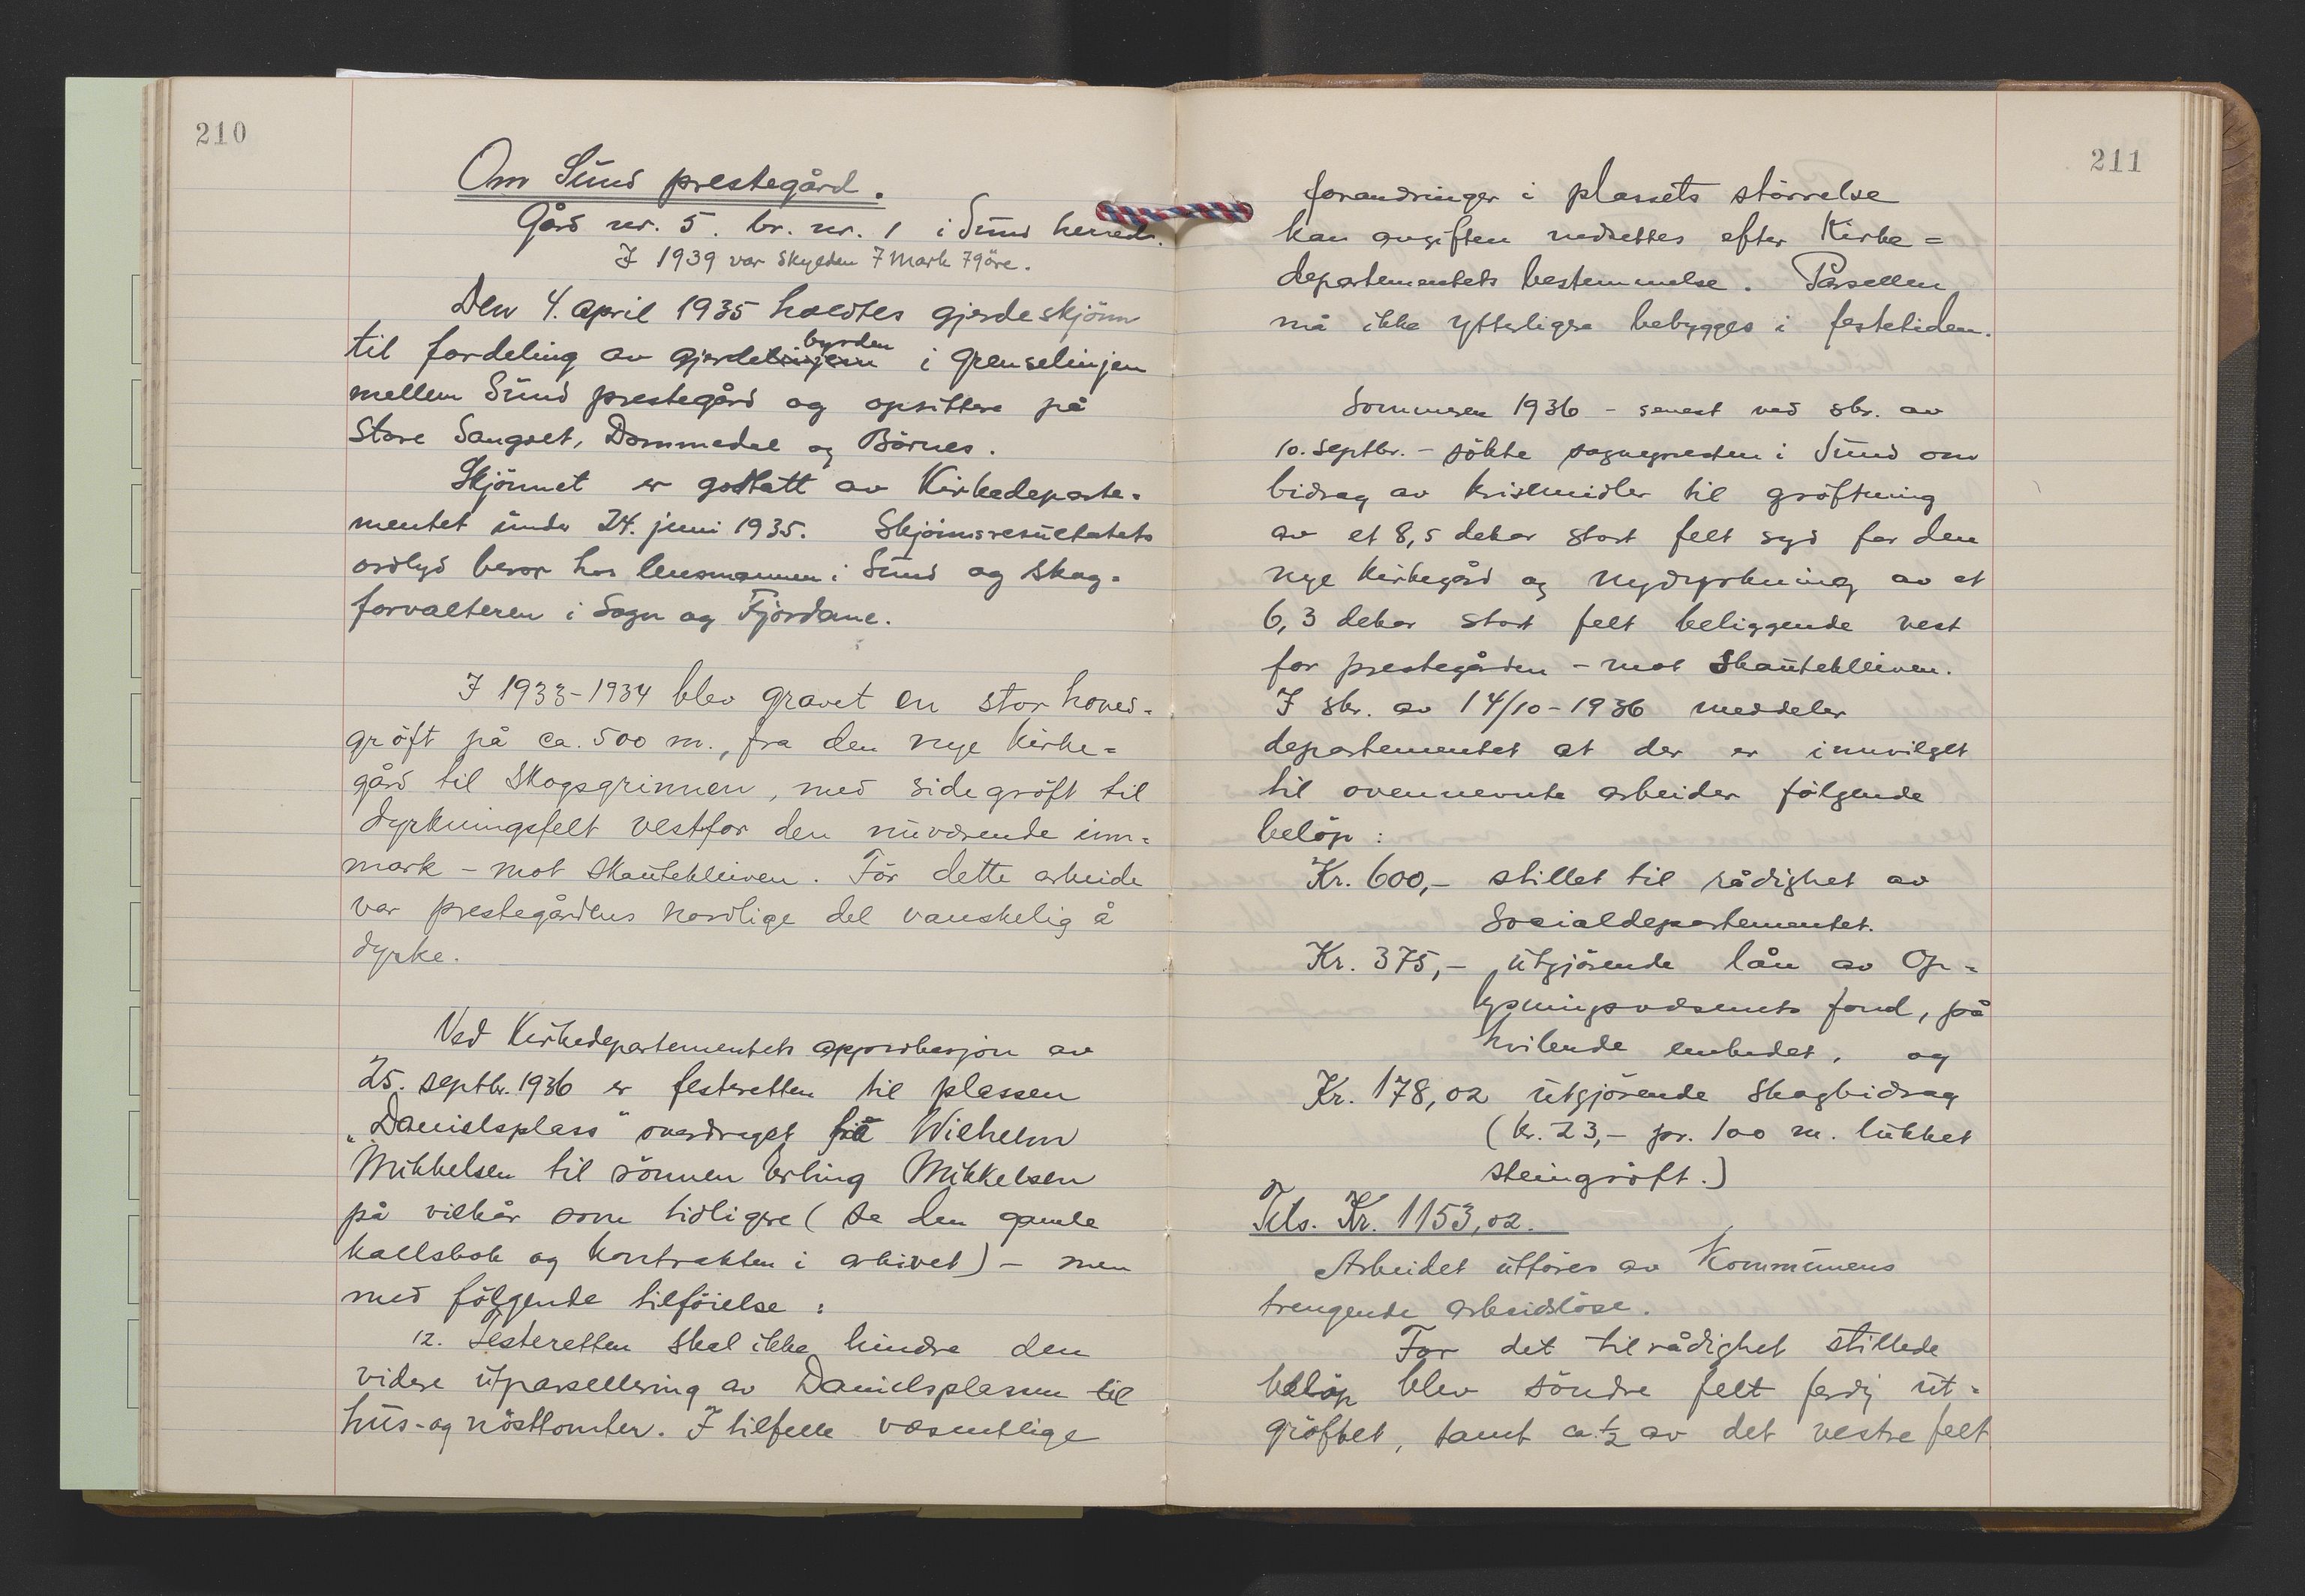 210
Om Sund prestegård.
Gårds nr. 5. br. nr. 1 i Sund herred.
I 1939 var skylden 7 mark 79 öre.
Den 4. april 1935 holdtes gjerdeskjönn
til fordeling av gjerdelinjem byrden i grenselinjen
mellem Sund prestegård og opsittere på
Store Sangolt, Dommedal og Börnes.
Skjönnet er godtatt av Kirkedeparte-
mentet under 24. juni 1935. Skjönnsresultatets
ordlyd beror hos lensmannen i Sund og skog-
forvalteren i Sogn og Fjordane.
I 1933-1934 blev gravet en stor hoved-
gröft på ca. 500 m., fra den nye kirke-
gård til Skogsgrinnen, med sidegröft til
dyrkningsfelt vestfor den nuværende inn-
mark - mot Skauteklleiven. För dette arbeide
var prestegårdens nordlige del vanskelig å
dyrke.
Ved Kirkedepartementets approbasjon av
25. septbr. 1936 er festeretten til plassen
"Danielsplass" overdraget frå Wilhelm
Mikkelsen til sönnen Erling Mikkelsen
på vilkår som tidligere (se den gamle
kallsbok og kontrakten i arkivet) - men
med fölgende tilföielse:
12. Festeretten skal ikke hindre den
videre utparsellering av Danielsplassen til
hus- og nösttomter. I tilfelle vesentlige
211
forandringer i plassets störrelse
kan avgiften nedsettes efter Kirke=
departementets bestemmelse. Parsellen
må ikke ytterligere bebygges i festetiden.
Sommeren 1936 - senest ved skr. av
10. septbr. - sökte sognepresten i Sund om
bidrag av krisemidler til gröftning
av et 8,5 dekar stort felt syd for den
nye kirkegård og nydyrkning av et
6,3 dekar stort felt beliggende vest
for prestegården - mot Skautekleiven.
I skr. av 14/10-1936 meddeler
departementet at der er innvilget
til ovennevnte arbeider fölgende
belöp:
Kr. 600,- stillet til rådighet av
Sosialdepartementet.
Kr. 375,- utgjörende lån av Op-
lysningsvæsenets fond, på
hvilende embedet, og
Kr. 178,02 utgjörende Skogbidrag
(kr. 23,- pr. 100 m. lukket
steingröft.)
Tils. Kr. 1153,02.
Arbeidet utföres av Kommunens
trengende arbeidslöse.
For det til rådighet stillede
belöp blev söndre felt ferdig ut-
gröftet, samt ca. ½ av det vestre felt